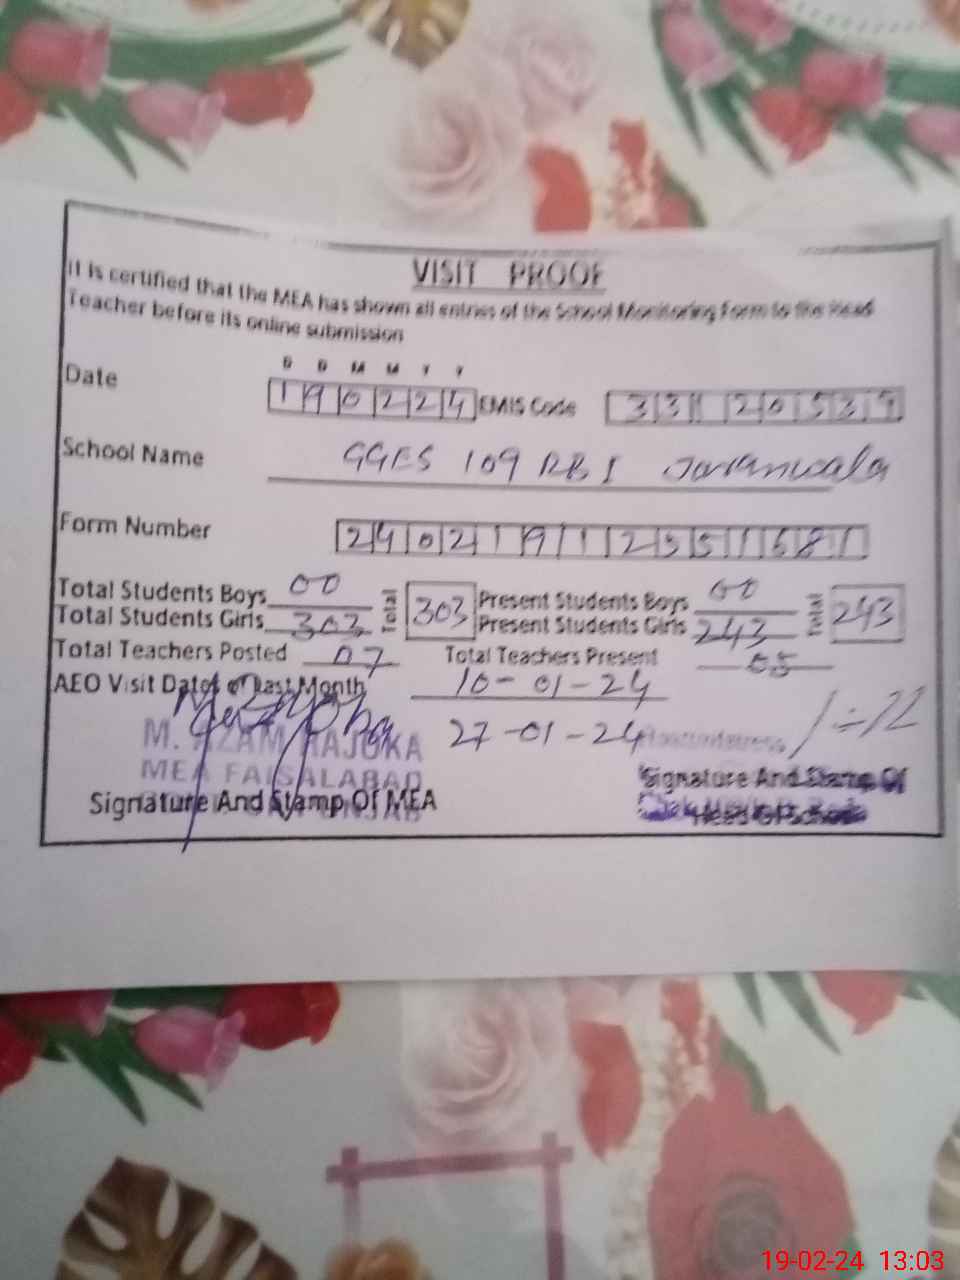 VISIT PROOF
It is certified that the MEA has shown all entries of the School Monitoring Form to the Head
Teacher before its online submission
D D M M Y Y
Date 190224 EMIS Code 33120539
School Name GGES 109 RB I Jaranwala
Form Number 240219112551681
Total Students Boys 00 Total 303 Present Students Boys 00 Total 243
Total Students Girls 303 Present Students Girls 243
Total Teachers Posted 07 Total Teachers Present 05
AEO Visit Dates of Last Month 10-01-24
27-01-24
M. AZAM RAJOKA
MEA FAISALABAD
Signature And Stamp Of MEA
Signature And Stamp Of
Head Of School
19-02-24 13:03